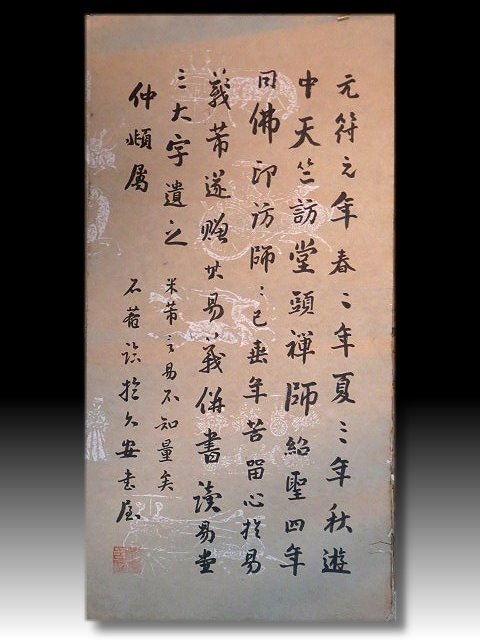 元符元年春二年夏三年秋遊
中天竺訪堂頭禪師紹聖四年
同佛印訪師〻已垂年苦留心於易
義芾遂贈其易義併書讀易堂
三大字遺之　米芾言易不知量矣
仲頫屬　石 於久安書屋